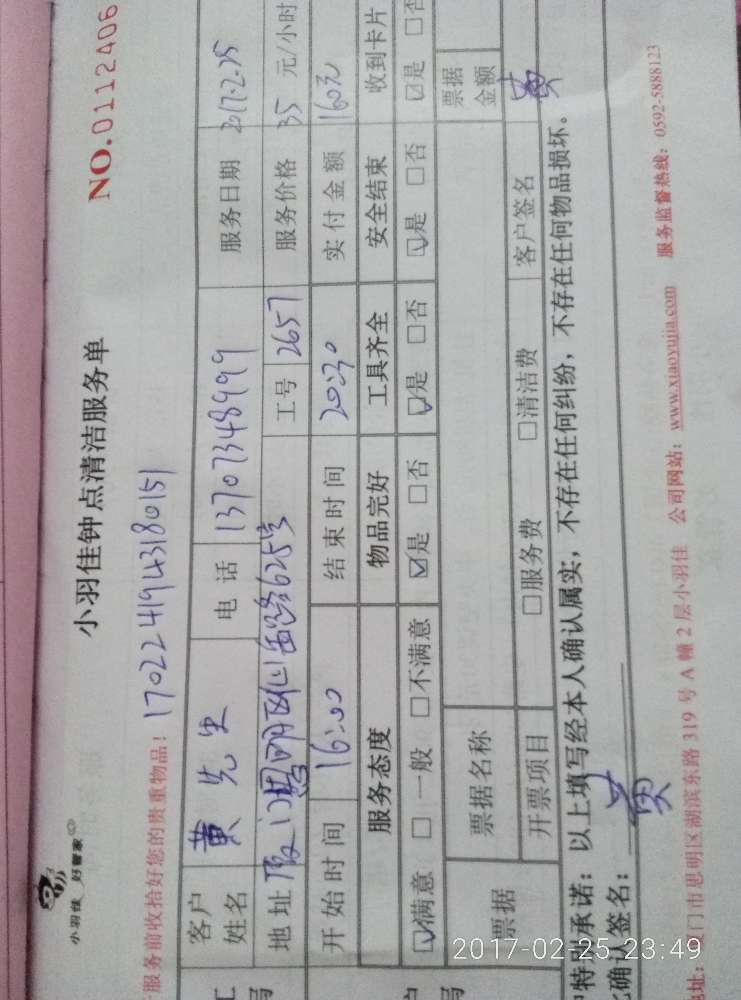 小羽佳 好管家
小羽佳钟点清洁服务单
NO.0112406
服务前收拾好您的贵重物品! 1702241943180151
客户姓名 黄先生 电话 13707348999 服务日期 2017-2-25
地址 厦门思明区 625号 工号 2657 服务价格 35 元/小时
开始时间 16:00 结束时间 20:30 实付金额 160元
服务态度 物品完好 工具齐全 安全结束 收到卡片
☑满意 □一般 □不满意 ☑是 □否 ☑是 □否 ☑是 □否 ☑是 □否
票据 票据名称 票据金额
开票项目 □服务费 □清洁费 客户签名 黄
特别承诺:以上填写经本人确认属实,不存在任何纠纷,不存在任何物品损坏。
确认签名: 黄
地址:厦门市思明区湖滨东路319号A幢2层小羽佳 公司网站:www.xiaoyujia.com 服务监督热线:0592-5888123
2017-02-25 23:49